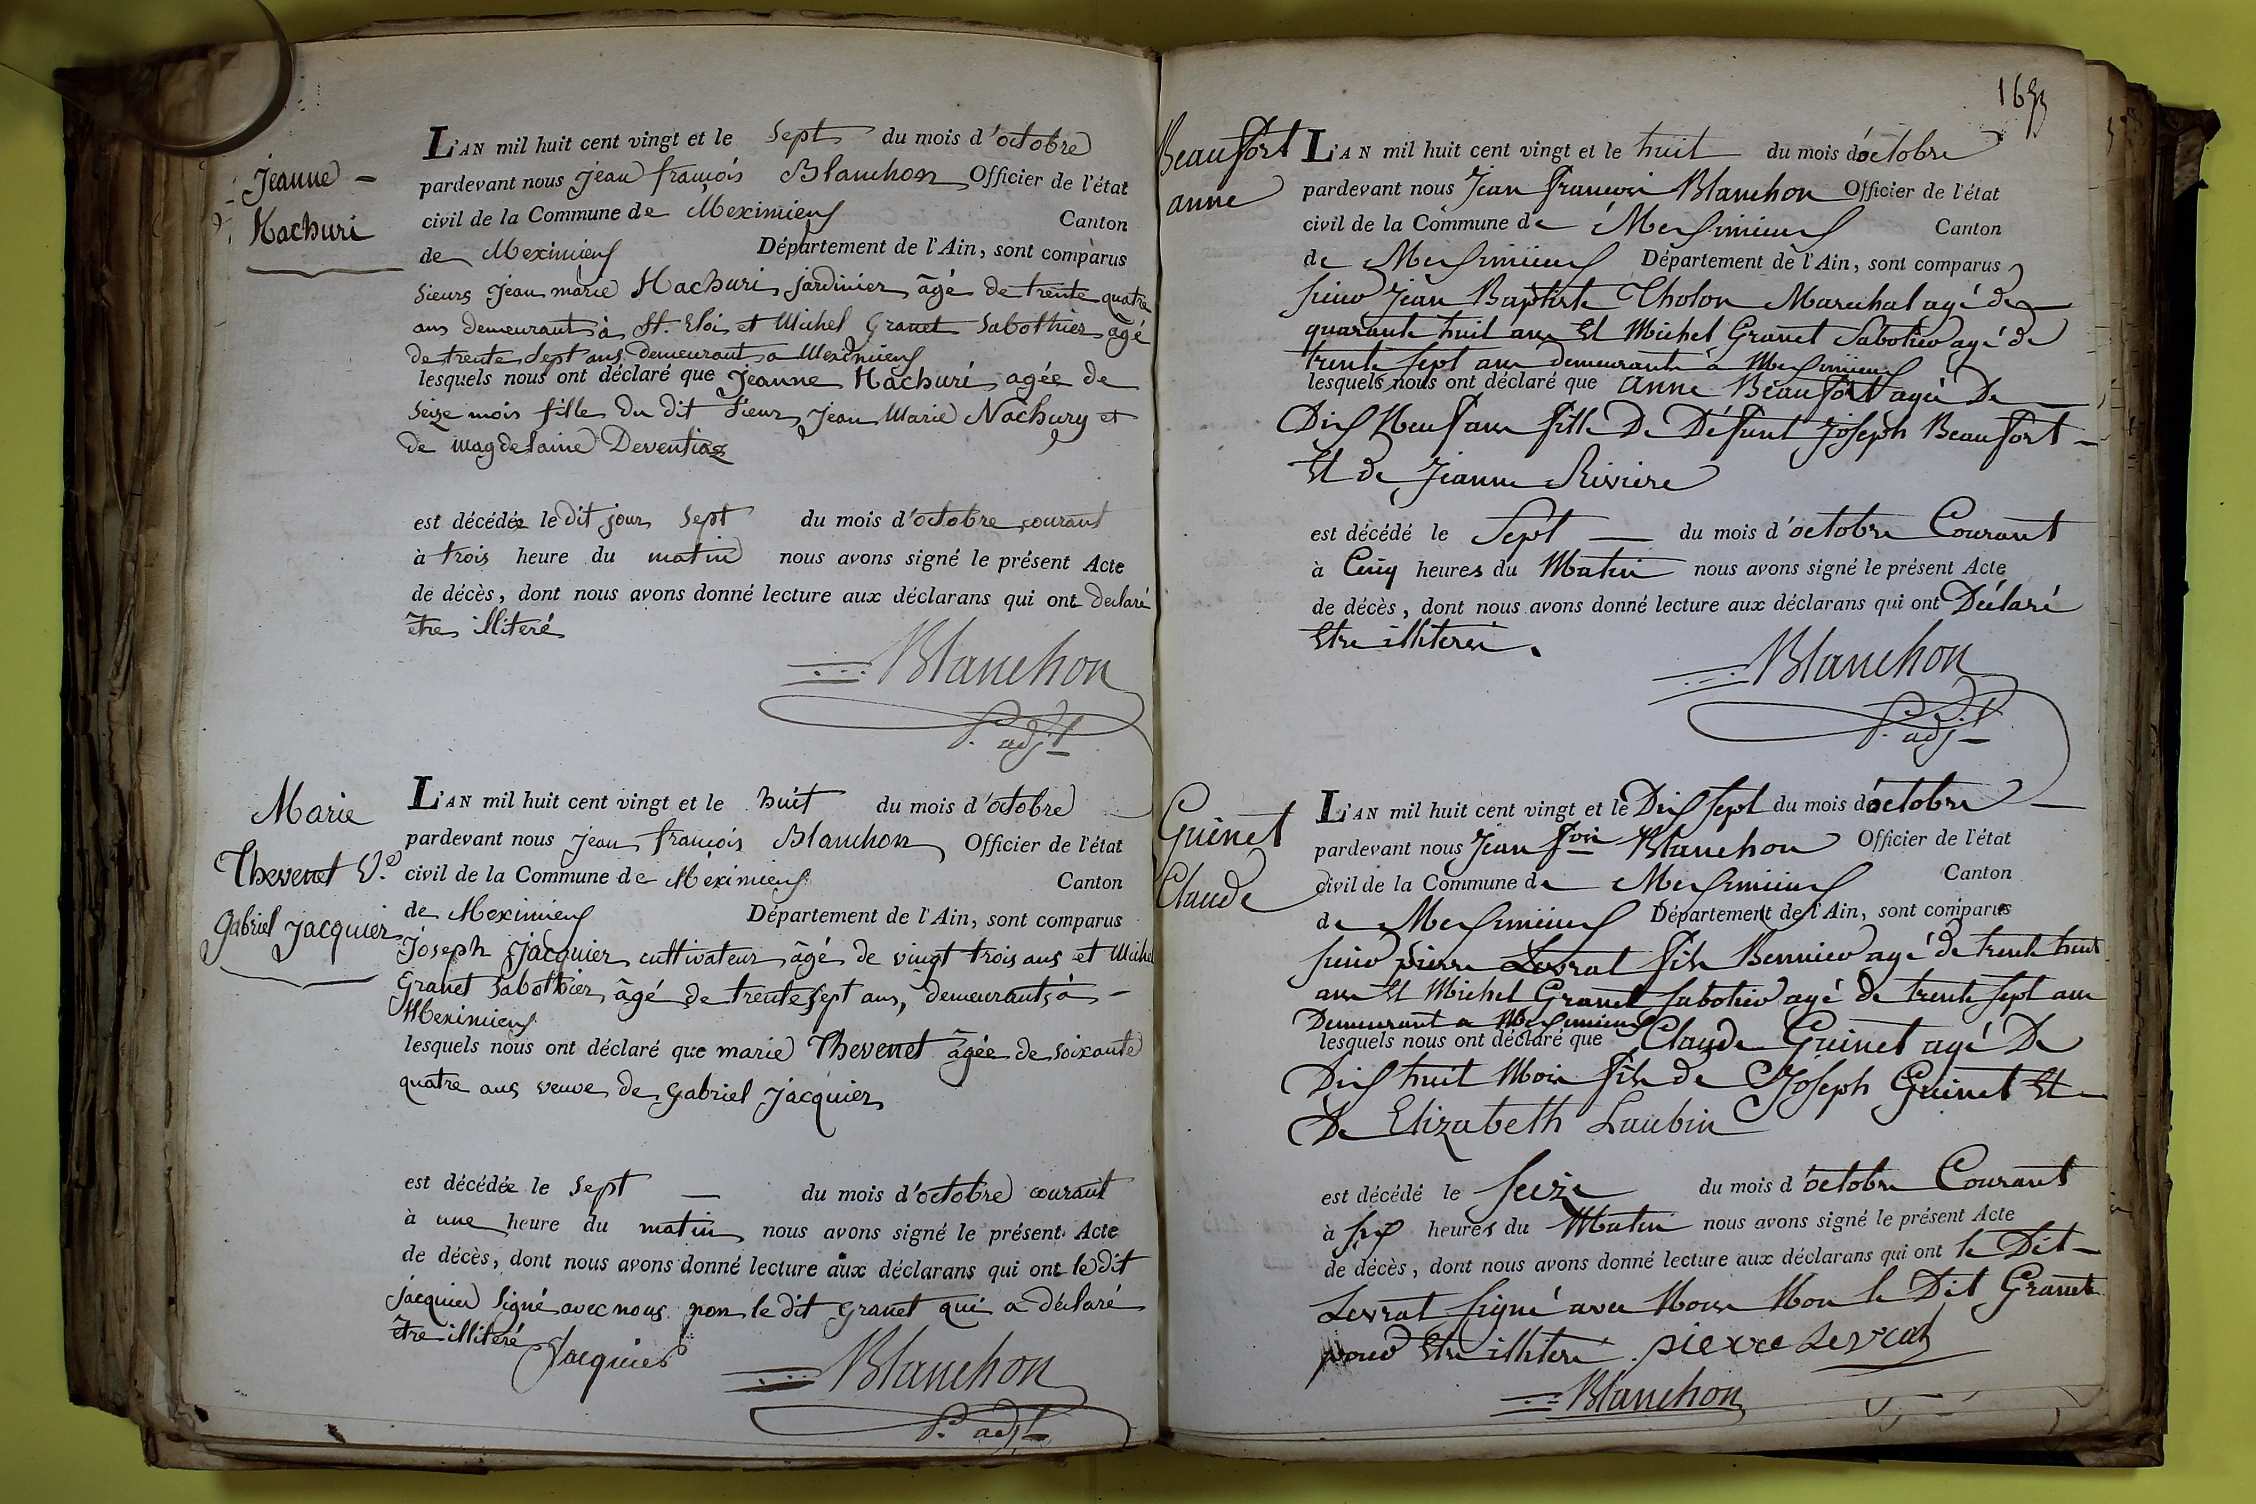 Jeanne –
Nachuri
L'AN mil huit cent vingt et le sept du mois d'octobre
pardevant nous jean françois Blanchon Officier de l'état
civil de la Commune de Meximieux Canton
de Meximieux Département de l'Ain, sont comparus
sieurs jean marie Nachuri jardinier âgé de trente quatre
ans demeurant à St. Eloi et Michel Granet Sabothier âgé
de trente sept ans demeurant a Meximieux
lesquels nous ont déclaré que Jeanne Nachuri agée de
seize mois fille du dit sieur Jean Marie Nachury et
de magdelaine Deventiaz
est décédée le dit jour sept du mois d'octobre courant
à trois heure du matin nous avons signé le présent Acte
de décès, dont nous avons donné lecture aux déclarans qui ont declaré
être illiteré
Blanchon
P. adjt
Marie
Thevenet Ve
gabriel jacquier
L'AN mil huit cent vingt et le huit du mois d'octobre
pardevant nous jean françois Blanchon Officier de l'état
civil de la Commune de Méximieux Canton
de Meximieux Département de l'Ain, sont comparus
Joseph jacquier cultivateur âgé de vingt trois ans et Michel
Granet Sabothier âgé de trente sept ans, demeurants à –
Meximieux
lesquels nous ont déclaré que marie Thevenet âgée de soixante
quatre ans veuve de gabriel jacquier
est décédée le sept — du mois d'octobre courant
à une heure du matin nous avons signé le présent Acte
de décès, dont nous avons donné lecture aux déclarans qui ont le dit
jacquier signé avec nous non le dit granet qui a déclaré
être illiteré
Jacquier
Blanchon
P. adjt
Beaufort
anne
L'AN mil huit cent vingt et le huit du mois d'octobre
pardevant nous Jean François Blanchon Officier de l'état
civil de la Commune de Messimieux Canton
de Messimieux Département de l'Ain, sont comparus
sieur Jean Baptiste Tholon Marechal agé de
quarante huit ans Et Michel Granet Sabotier agé de
trente sept ans demeurants à Messimieux
lesquels nous ont déclaré que anne Beaufort agée De
Dix Neuf ans fille De Défunt Joseph Beaufort –
Et de Jeanne Riviere
est décédé le Sept — du mois d'octobre Courant
à Cinq heures du Matin nous avons signé le présent Acte
de décès, dont nous avons donné lecture aux déclarans qui ont Déclaré
Etre illiterés.
Blanchon
P. adjt
Guinet
Claude
L'AN mil huit cent vingt et le Dix sept du mois d'octobre
pardevant nous Jean fois Blanchon Officier de l'état
civil de la Commune de Messimieux Canton
de Messimieux Département de l'Ain, sont comparus
sieur pierre Levrat fils Bennier agé de trente huit
ans Et Michel Granet sabotier agé de trente sept ans
Demeurant a Messimieux
lesquels nous ont déclaré que Claude Guinet agé De
Dix huit Mois fils de Joseph Guinet Et
De Elizabeth Laubin
est décédé le Seize du mois d'octobre Courant
à six heures du Matin nous avons signé le présent Acte
de décès, dont nous avons donné lecture aux déclarans qui ont le Dit –
Levrat signé avec Nous Non le Dit Granet
pour Etre illiteré pierre Levrat
Blanchon